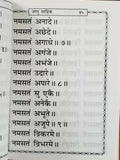 जापु साहिब
नमसतं अगाहे॥
नमसतं अछेदे॥
नमसतं अगाधे॥७॥
नमसतं अगंजे॥
नमसतं अभंजे॥
नमसतं उदारे॥
नमसतं अपारे॥८॥
नमसतं सु एकै॥
नमसतं अनेकै॥
नमसतं अभूते॥
नमसतं अजूपे॥९॥
नमसतं न्रिकरमे॥
नमसतं न्रिभरमे॥